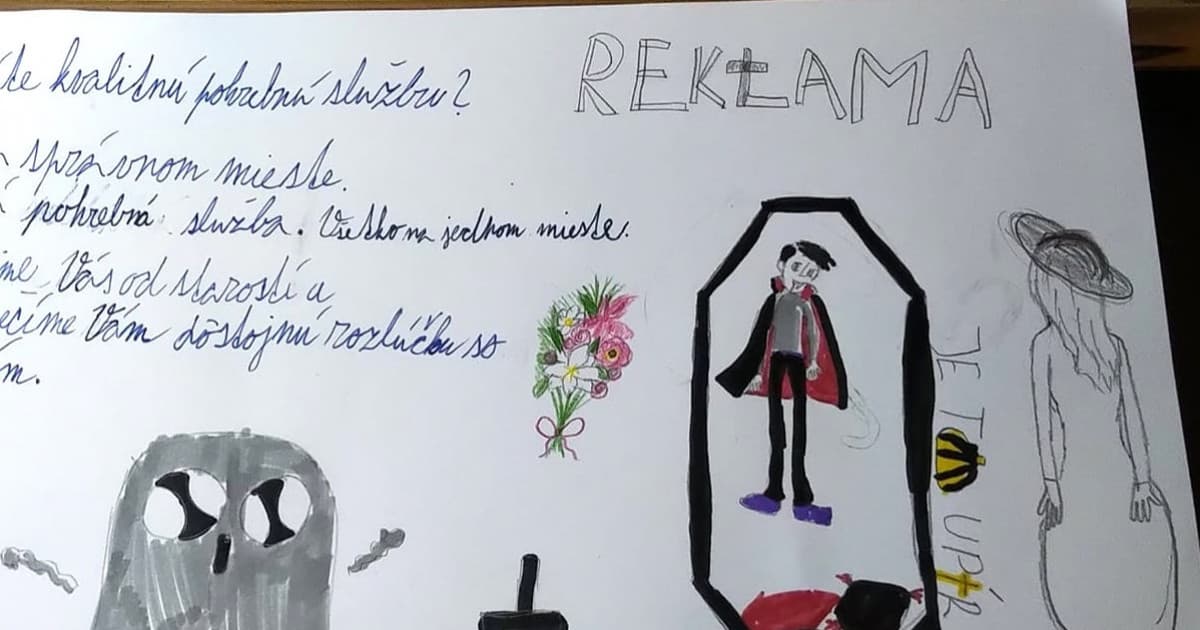 REKŁAMA
kvalitnú pohrebnú službu?
správnom mieste.
pohrebná služba. Všetko na jednom mieste.
me Vás od starostí a
Vám dôstojnú rozlúčku so
m.
JE TO UPÍR